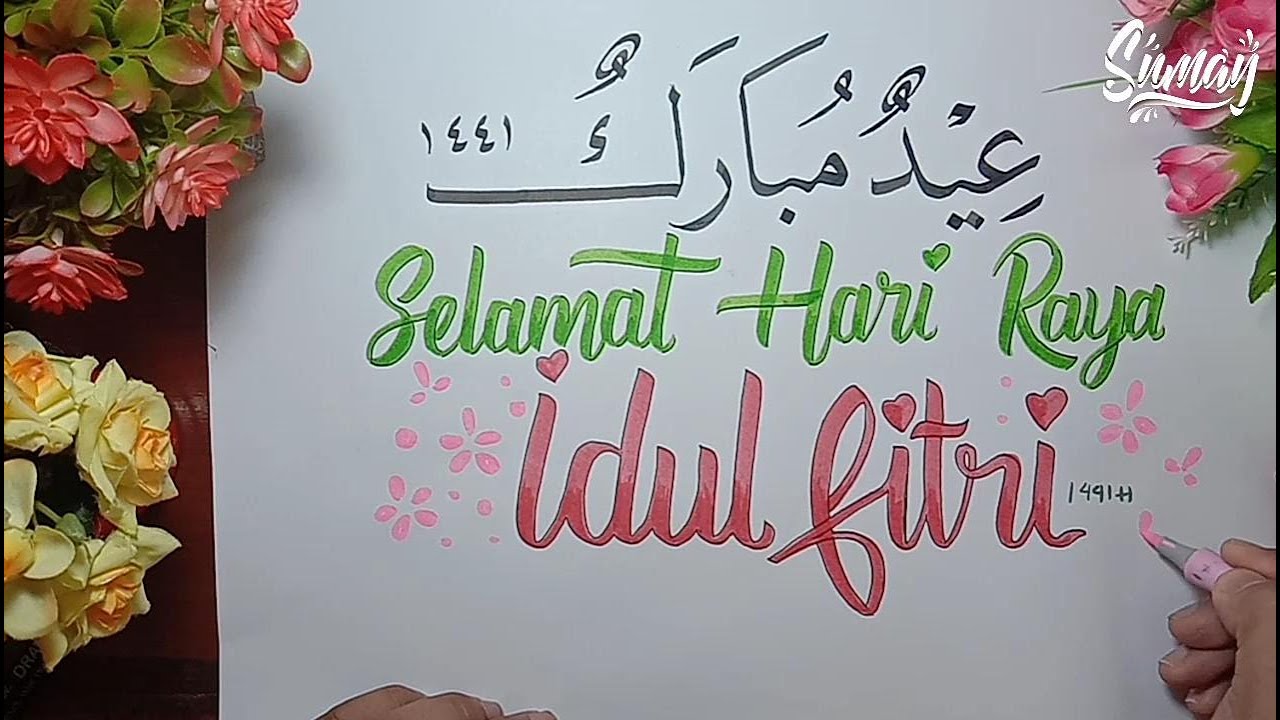 Sumay
عِيْدٌ مُبَارَكٌ
١٤٤١
Selamat Hari Raya
idul fitri
1441 H